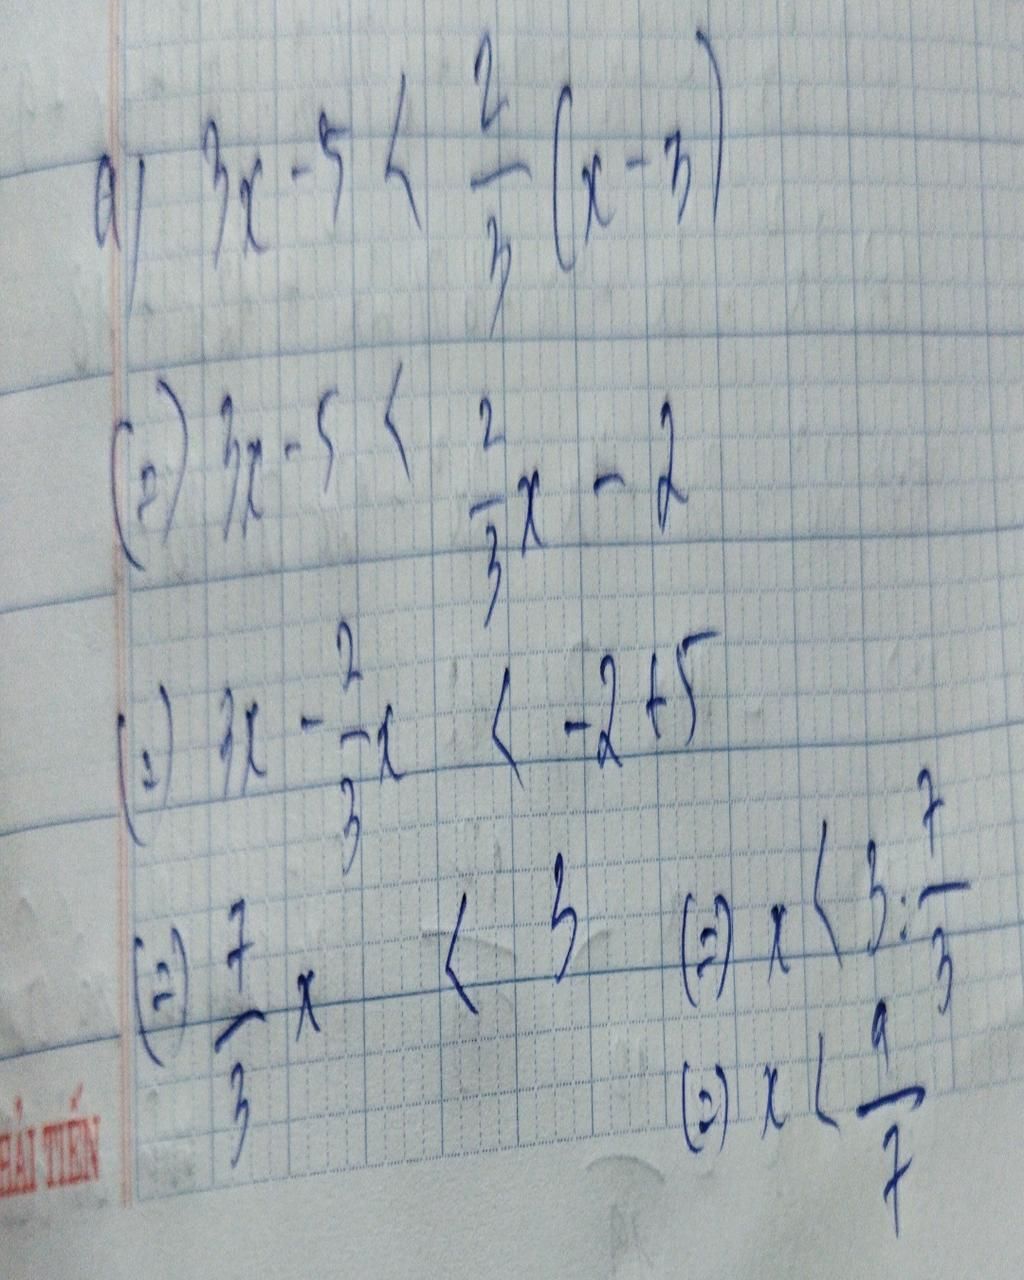 a) 3x - 5 < 2/3 (x - 3)
(=) 3x - 5 < 2/3 x - 2
(=) 3x - 2/3 x < -2 + 5
(=) 7/3 x < 3 (=) x < 3 : 7/3
(=) x < 9/7
HẢI TIẾN